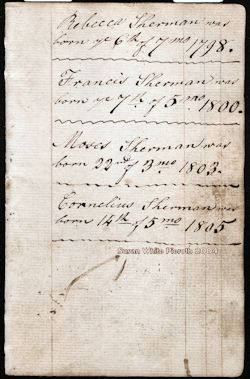 Rebecca Sherman was
born ye 6th of 7 mo 1798.
Francis Sherman was
born ye 7th of 5 mo 1800.
Moses Sherman was
born 22nd of 3 mo 1803.
Cornelius Sherman was
born 14th of 5 mo 1805
Susan White Pieroth 2004